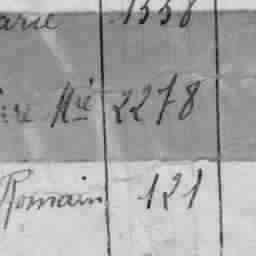 arie 1558
ire Mie 2278
Romain 121